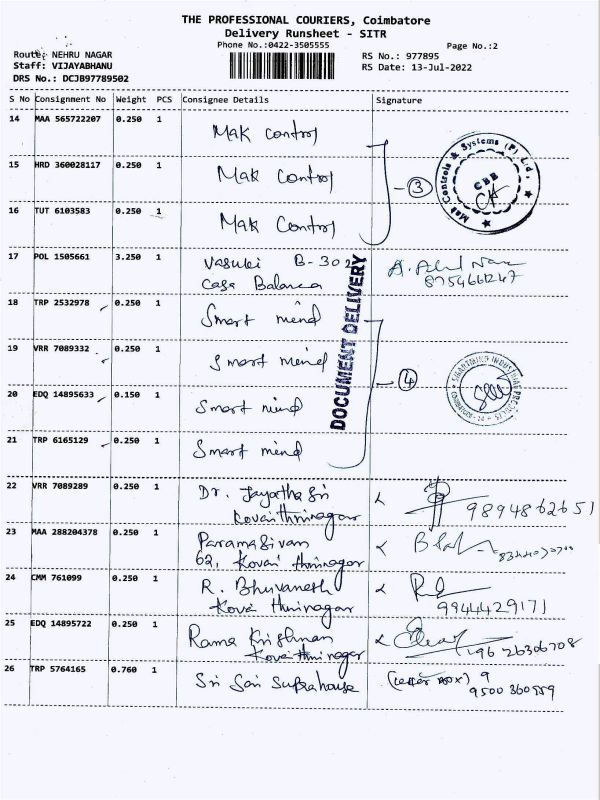 THE PROFESSIONAL COURIERS, Coimbatore
Delivery Runsheet - SITR
Phone No.:0422-3505555
Page No.:2
Route: NEHRU NAGAR
Staff: VIJAYABHANU
DRS No.: DCJB97789502
RS No.: 977895
RS Date: 13-Jul-2022
S No Consignment No Weight PCS Consignee Details Signature
14 MAA 565722207 0.250 1 Mak Control
15 HRD 360028117 0.250 1 Mak Control
16 TUT 6103583 0.250 1 Mak Control
③
Mak Controls & Systems (P) Ltd.,
CBE
17 POL 1505661 3.250 1 Vasuki B-302
Casa Balanca
8754661247
DOCUMENT DELIVERY
18 TRP 2532978 0.250 1 Smart mind
19 VRR 7089332 0.250 1 Smart meind
20 EDQ 14895633 0.150 1 Smart mind
21 TRP 6165129 0.250 1 Smart mind
④
22 VRR 7089289 0.250 1 Dr. Jayartha Sri
Kovai thirinagar
9894862651
23 MAA 288204378 0.250 1 Paramasivan
62, Kovai thirinagar
24 CMM 761099 0.250 1 R. Bhuvanesh
Kovai thirinagar
9944429171
25 EDQ 14895722 0.250 1 Rama Krishnan
Kovai thirinagar
9626306708
26 TRP 5764165 0.760 1 Sri Sai Suprahouse
(letter box)
9500360559